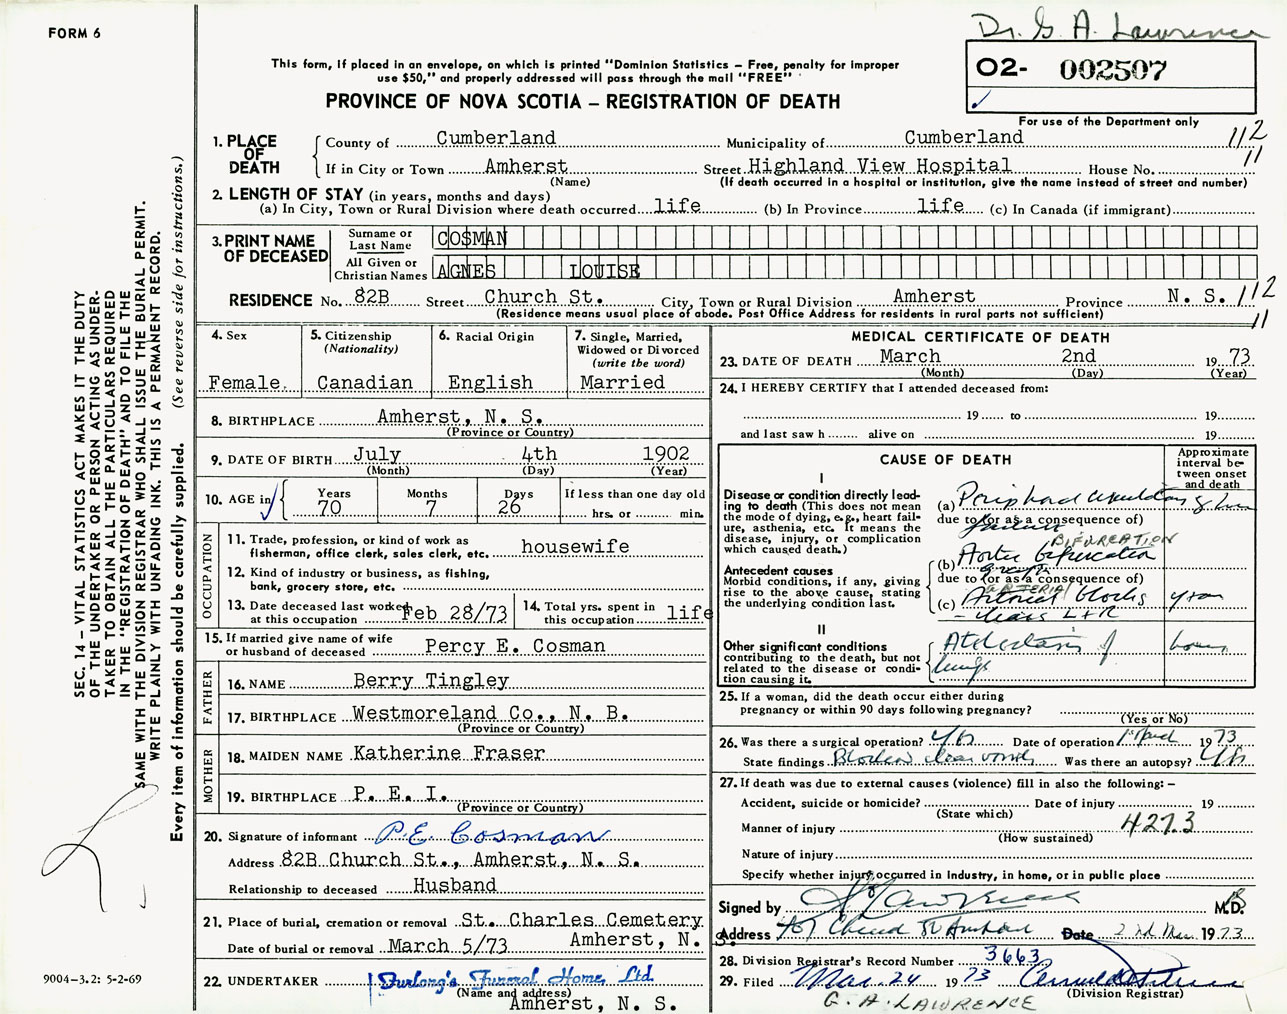 FORM 6
Dr. G. A. Lawrence
This form, if placed in an envelope, on which is printed "Dominion Statistics – Free, penalty for improper
use $50," and properly addressed will pass through the mail "FREE"
02- 002507
PROVINCE OF NOVA SCOTIA – REGISTRATION OF DEATH
For use of the Department only
1. PLACE OF DEATH
County of Cumberland Municipality of Cumberland 112
11
If in City or Town Amherst Street Highland View Hospital House No.
(Name) (If death occurred in a hospital or institution, give the name instead of street and number)
2. LENGTH OF STAY (in years, months and days)
(a) In City, Town or Rural Division where death occurred life (b) In Province life (c) In Canada (if immigrant)
3. PRINT NAME OF DECEASED
Surname or Last Name COSMAN
All Given or Christian Names AGNES LOUISE
RESIDENCE No. 82B Street Church St. City, Town or Rural Division Amherst Province N. S. 112
11
(Residence means usual place of abode. Post Office Address for residents in rural parts not sufficient)
4. Sex
Female
5. Citizenship
(Nationality)
Canadian
6. Racial Origin
English
7. Single, Married,
Widowed or Divorced
(write the word)
Married
8. BIRTHPLACE Amherst, N. S.
(Province or Country)
9. DATE OF BIRTH July 4th 1902
(Month) (Day) (Year)
10. AGE in
Years Months Days If less than one day old
70 7 26 hrs. or min.
OCCUPATION
11. Trade, profession, or kind of work as
fisherman, office clerk, sales clerk, etc. housewife
12. Kind of industry or business, as fishing,
bank, grocery store, etc.
13. Date deceased last worked
at this occupation Feb 28/73
14. Total yrs. spent in
this occupation life
15. If married give name of wife
or husband of deceased Percy E. Cosman
FATHER
16. NAME Berry Tingley
17. BIRTHPLACE Westmoreland Co., N. B.
(Province or Country)
MOTHER
18. MAIDEN NAME Katherine Fraser
19. BIRTHPLACE P. E. I.
(Province or Country)
20. Signature of informant P.E. Cosman
Address 82B Church St., Amherst, N. S.
Relationship to deceased Husband
21. Place of burial, cremation or removal St. Charles Cemetery
Date of burial or removal March 5/73 Amherst, N. S.
22. UNDERTAKER Furlong's Funeral Home, Ltd.
(Name and address)
Amherst, N. S.
MEDICAL CERTIFICATE OF DEATH
23. DATE OF DEATH March 2nd 19 73
(Month) (Day) (Year)
24. I HEREBY CERTIFY that I attended deceased from:
19 to 19
and last saw h alive on 19
CAUSE OF DEATH
Approximate
interval be-
tween onset
and death
I
Disease or condition directly lead-
ing to death (This does not mean
the mode of dying, e.g., heart fail-
ure, asthenia, etc. It means the
disease, injury, or complication
which caused death.)
(a) Peripheral circulatory
failure
due to (or as a consequence of)
BIFURCATION
Antecedent causes
Morbid conditions, if any, giving
rise to the above cause, stating
the underlying condition last.
(b) Aortic bifurcation
graft
due to (or as a consequence of)
ARTERIAL
(c) Arterial blocks
L + R
II
Other significant conditions
contributing to the death, but not
related to the disease or condi-
tion causing it.
Atelectasis of hours
lungs
25. If a woman, did the death occur either during
pregnancy or within 90 days following pregnancy?
(Yes or No)
26. Was there a surgical operation? Yes Date of operation 1st March 19 73
State findings Blocked Was there an autopsy? Yes
27. If death was due to external causes (violence) fill in also the following: –
Accident, suicide or homicide? Date of injury 19
(State which)
Manner of injury 427.3
(How sustained)
Nature of injury
Specify whether injury occurred in Industry, in home, or in public place
Signed by G A Lawrence M.D.
Address 107 Church St Amherst Date 2nd Mar 19 73
28. Division Registrar's Record Number 3663
29. Filed Mar. 24 19 73
(Division Registrar)
G. A. LAWRENCE
SEC. 14 – VITAL STATISTICS ACT MAKES IT THE DUTY
OF THE UNDERTAKER OR PERSON ACTING AS UNDER-
TAKER TO OBTAIN ALL THE PARTICULARS REQUIRED
IN THE "REGISTRATION OF DEATH" AND TO FILE THE
SAME WITH THE DIVISION REGISTRAR WHO SHALL ISSUE THE BURIAL PERMIT.
WRITE PLAINLY WITH UNFADING INK. THIS IS A PERMANENT RECORD.
Every item of information should be carefully supplied. (See reverse side for instructions.)
9004-3.2: 5-2-69